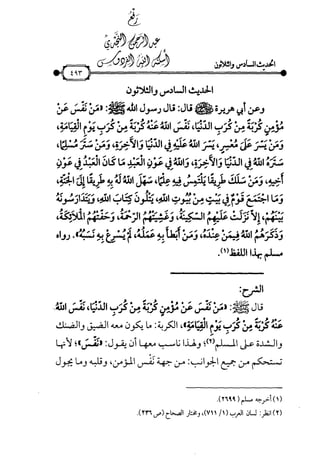 رفع
عبد الرحمن النجدي
أسكنه الله الفردوس
الحديث السادس والثلاثون
٤٩٣
الحديث السادس والثلاثون
وعن أبي هريرة ﷺ قال: قال رسول الله ﷺ: «مَنْ نَفَّسَ عَنْ
مُؤْمِنٍ كُرْبَةً مِنْ كُرَبِ الدُّنْيَا، نَفَّسَ اللهُ عَنْهُ كُرْبَةً مِنْ كُرَبِ يَوْمِ الْقِيَامَةِ،
وَمَنْ يَسَّرَ عَلَى مُعْسِرٍ، يَسَّرَ اللهُ عَلَيْهِ فِي الدُّنْيَا وَالآخِرَةِ، وَمَنْ سَتَرَ مُسْلِمًا،
سَتَرَهُ اللهُ فِي الدُّنْيَا وَالآخِرَةِ، وَاللهُ فِي عَوْنِ الْعَبْدِ مَا كَانَ الْعَبْدُ فِي عَوْنِ
أَخِيهِ، وَمَنْ سَلَكَ طَرِيقًا يَلْتَمِسُ فِيهِ عِلْمًا، سَهَّلَ اللهُ لَهُ بِهِ طَرِيقًا إِلَى الْجَنَّةِ،
وَمَا اجْتَمَعَ قَوْمٌ فِي بَيْتٍ مِنْ بُيُوتِ اللهِ، يَتْلُونَ كِتَابَ اللهِ، وَيَتَدَارَسُونَهُ
بَيْنَهُمْ، إِلَّا نَزَلَتْ عَلَيْهِمُ السَّكِينَةُ، وَغَشِيَتْهُمُ الرَّحْمَةُ، وَحَفَّتْهُمُ الْمَلَائِكَةُ،
وَذَكَرَهُمُ اللهُ فِيمَنْ عِنْدَهُ، وَمَنْ أَبْطَأَ بِهِ عَمَلُهُ، لَمْ يُسْرِعْ بِهِ نَسَبُهُ». رواه
مسلم بهذا اللفظ(١).
الشرح:
قال ﷺ: «مَنْ نَفَّسَ عَنْ مُؤْمِنٍ كُرْبَةً مِنْ كُرَبِ الدُّنْيَا، نَفَّسَ اللهُ
عَنْهُ كُرْبَةً مِنْ كُرَبِ يَوْمِ الْقِيَامَةِ»، الكربة: ما يكون معه الضيق والضنك
والشدة على المسلم(٢)؛ ولهذا ناسب معها أن يقول: «نَفَّسَ»؛ لأنها
تستحكم من جميع الجوانب: من جهة نَفْس المؤمن، وقلبه وما يجول
(١) أخرجه مسلم (٢٦٩٩).
(٢) انظر: لسان العرب (١/ ٧١١)، ومختار الصحاح (ص ٢٣٦).